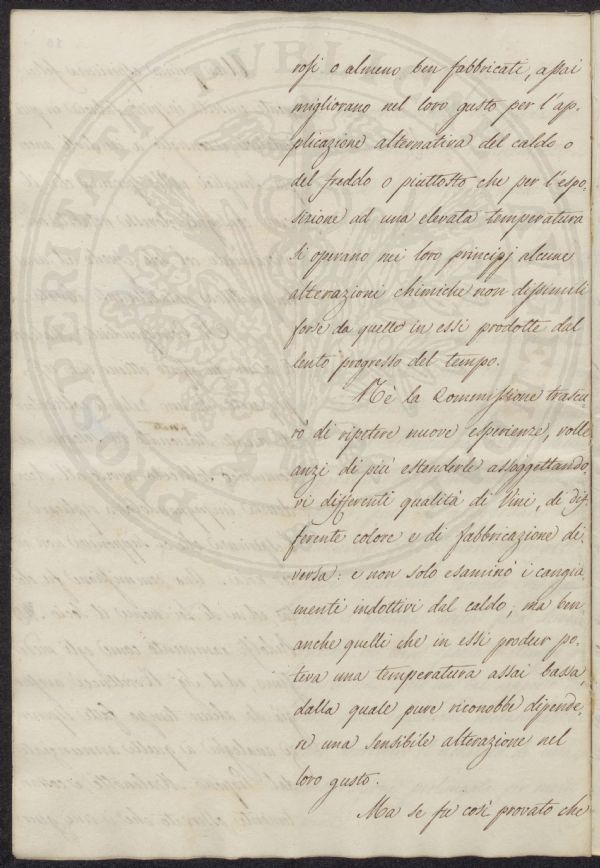 rosi o almeno ben fabbricate, assai
migliorano nel loro gusto per l'ap-
plicazione alternativa del caldo o
del freddo o piuttosto che per l'espo-
sizione ad una elevata temperatura
si operano nei loro principj alcune
alterazioni chimiche non dissimili
forse da quelle in essi prodotte dal
lento progresso del tempo.
Nè la Commissione trascu
rò di ripetere nuove esperienze, volle
anzi di più estenderle assoggettando-
vi differenti qualità di Vini, di dif-
ferente colore e di fabbricazione di-
versa: e non solo esaminò i cangia-
menti indottivi dal caldo, ma ben
anche quelli che in essi produr po-
teva una temperatura assai bassa,
dalla quale pure riconobbe dipende-
re una sensibile alterazione nel
loro gusto.
Ma se fu così provato che